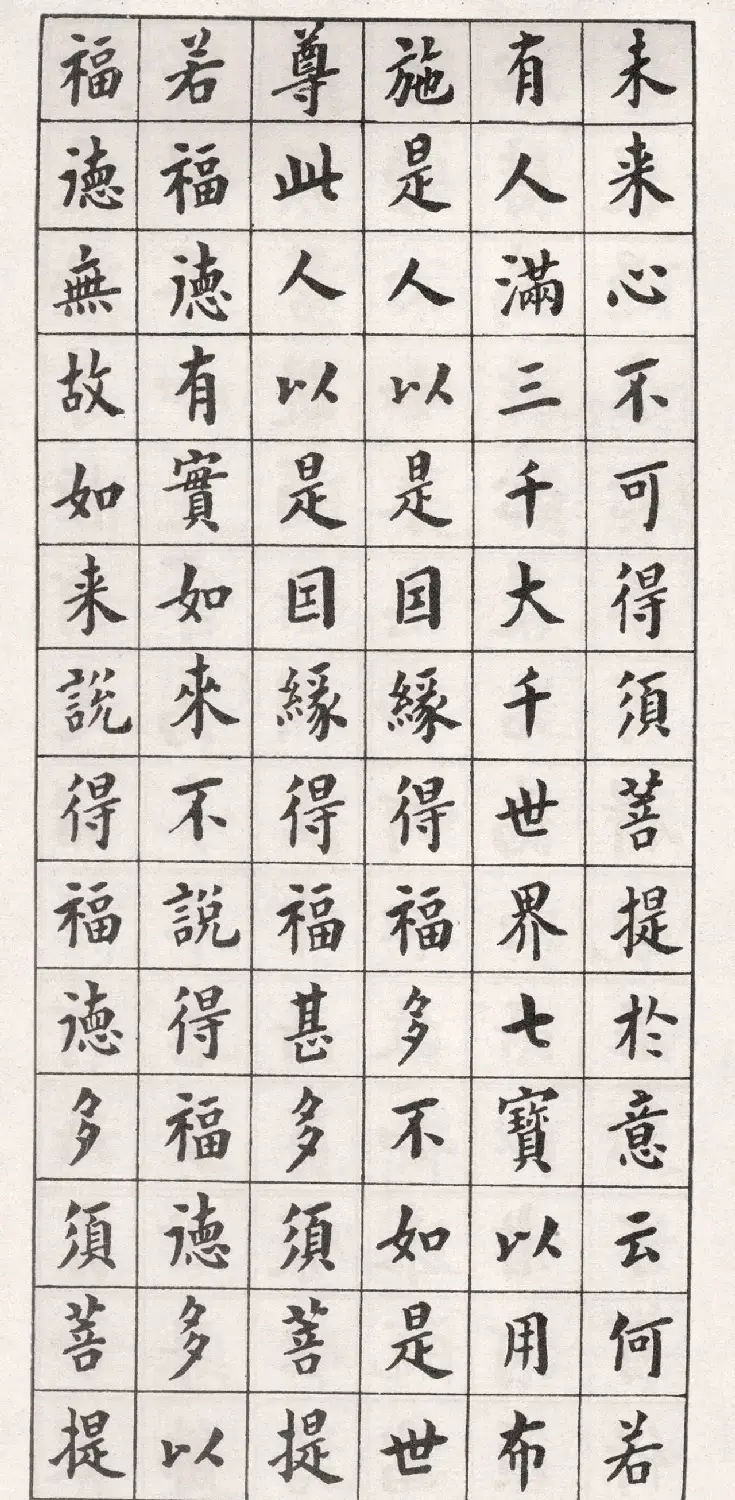 未来心不可得須菩提於意云何若
有人滿三千大千世界七寶以用布
施是人以是因緣得福多不如是世
尊此人以是因緣得福甚多須菩提
若福德有實如來不說得福德多以
福德無故如来說得福德多須菩提